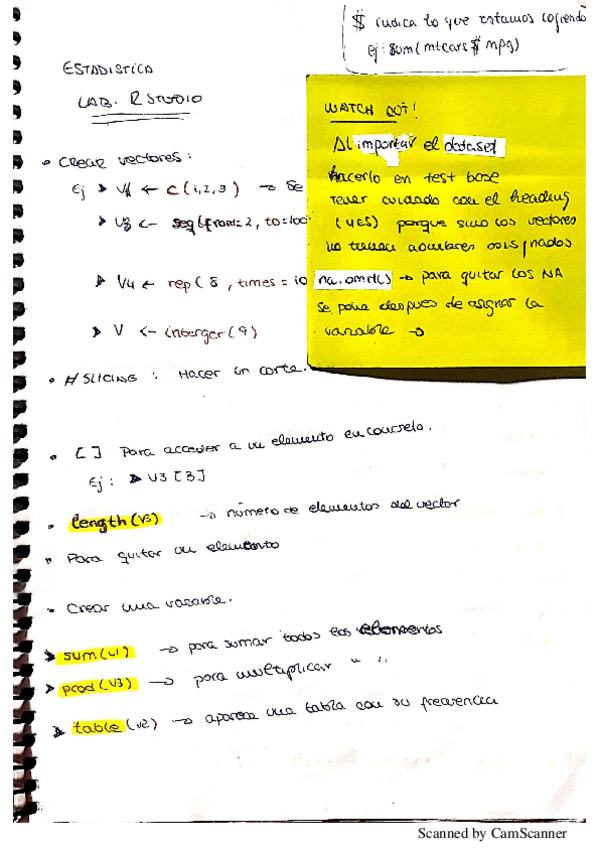 $ indica lo que estamos cogiendo
ej: sum(mtcars $ mpg)
ESTADISTICA
LAB. R STUDIO
WATCH OUT!
Al importar el dataset
hacerlo en text base
tener cuidado con el heading
(YES) porque sino los vectores
no tienen nombres asignados
na.omit() → para quitar los NA
se pone despues de asignar la
variable →
• Crear vectores:
Ej ➤ V1 ← c(1,2,3) → Se
➤ V3 <- seq(from=2, to=100
➤ V4 ← rep(8, times = 10
➤ V <- interger(9)
• # SLICING : Hacer un corte.
• [ ] Para acceder a un elemento en concreto.
Ej: ➤ V3[3]
• length(V3) → número de elementos del vector
• Para quitar un elemento
• Crear una variable.
➤ sum(v1) → para sumar todos los elementos
➤ prod(V3) → para multiplicar " "
➤ table(v2) → aparece una tabla con su frecuencia
Scanned by CamScanner